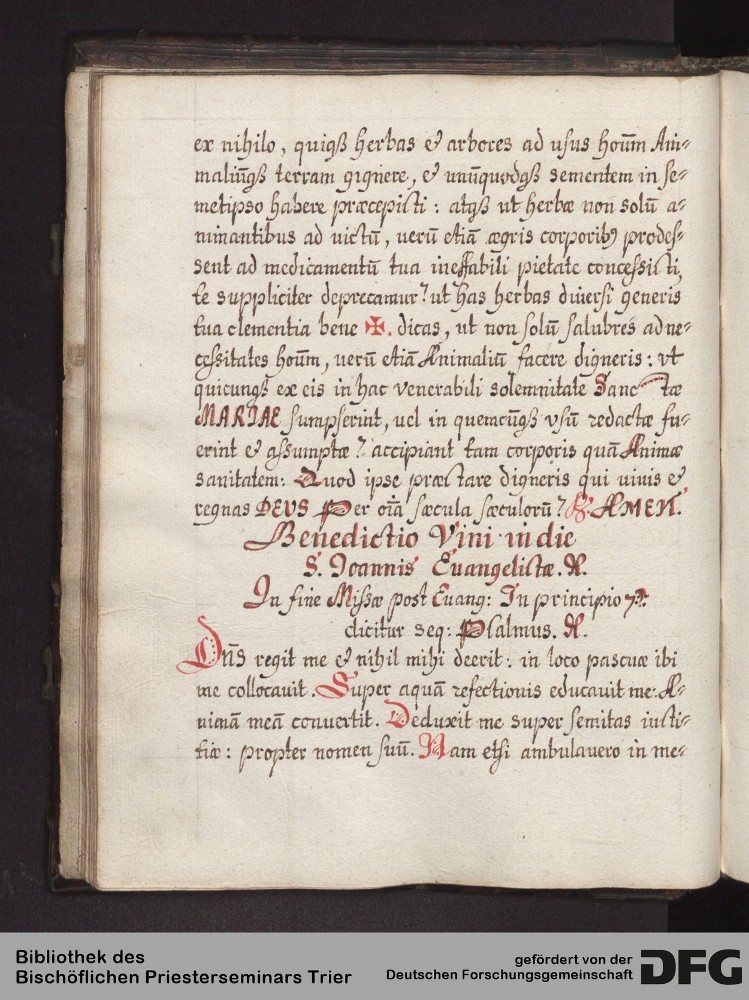 ex nihilo, quiqꝫ herbas & arbores ad usus hoūm Ani-
maliūqꝫ terram gignere, & unūquodqꝫ sementem in se-
metipso habere præcepisti : atqꝫ ut herbæ non solū a-
nimantibus ad victū, uerū etiā ægris corporibꝰ prodes-
sent ad medicamentū tua ineffabili pietate concessisti,
te suppliciter deprecamur? ut has herbas diuersi generis
tua clementia bene ✠. dicas, ut non solū salubres ad ne-
cessitates hoūm, uerū etiā Animaliū facere digneris : ut
quicunqꝫ ex eis in hac venerabili solemnitate Sanctæ
MARIAE sumpserint, uel in quemcūqꝫ usū redactæ fu-
erint & assumptæ? accipiant tam corporis quā Animæ
sanitatem: Quod ipse præstare digneris qui uiuis &
regnas DEUS Per oīa sæcula sæculorū? ℟. AMEN.
Benedictio Vini in die
S. Joannis Euangelistæ. N.
In fine Missæ post Euang: In principio
dicitur seq: Psalmus. N.
Dn̄s regit me & nihil mihi deerit : in loco pascuæ ibi
me collocauit. Super aquā refectionis educauit me: A-
nimā meā conuertit. Deduxit me super semitas iusti-
tiæ : propter nomen suū. Nam etsi ambulauero in me-
Bibliothek des
Bischöflichen Priesterseminars Trier
gefördert von der
Deutschen Forschungsgemeinschaft
DFG